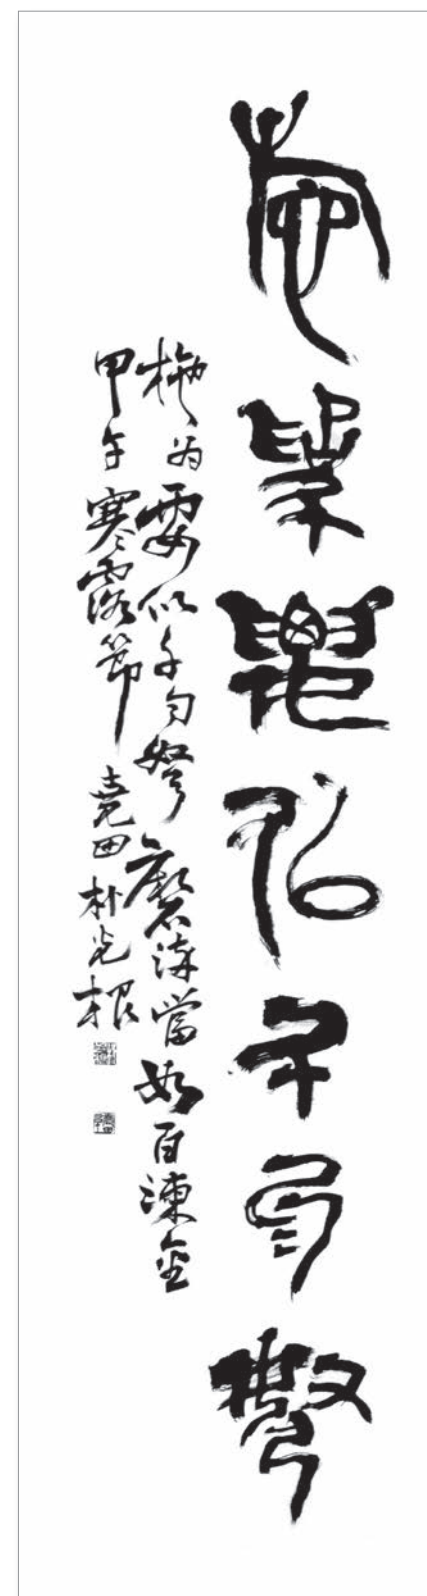 施為要似千勻弩
施為要似千勻弩磨當如百湅金
甲午寒露節 堯田朴光根